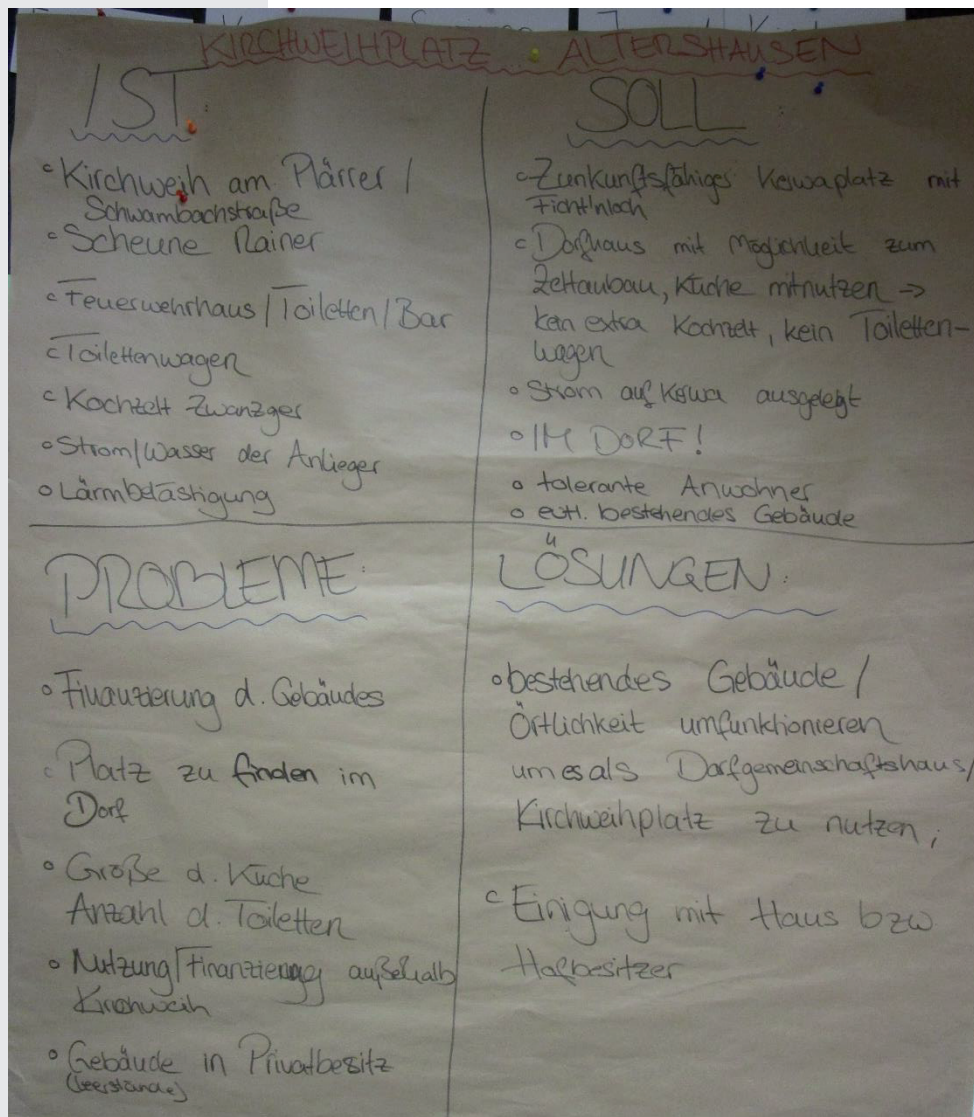 KIRCHWEIHPLATZ ALTERSHAUSEN
IST:
○ Kirchweih am Plärrer /
Schwambachstraße
○ Scheune Rainer
○ Feuerwehrhaus / Toiletten / Bar
○ Toilettenwagen
○ Kochzelt Zwanzger
○ Strom/Wasser der Anlieger
○ Lärmbelästigung
SOLL
○ Zunkunftsfähiges Kerwaplatz mit
Ficht'nloch
○ Dorfhaus mit Möglichkeit zum
Zeltaubau, Küche mitnutzen →
kein extra Kochzelt, kein Toiletten-
wagen
○ Strom auf Kerwa ausgelegt
○ IM DORF!
○ tolerante Anwohner
○ evtl. bestehendes Gebäude
PROBLEME:
○ Finanzierung d. Gebäudes
○ Platz zu finden im
Dorf
○ Größe d. Küche
Anzahl d. Toiletten
○ Nutzung/Finanzierung außerhalb
Kirchweih
○ Gebäude in Privatbesitz
(Leerstände)
LÖSUNGEN:
○ bestehendes Gebäude /
Örtlichkeit umfunktionieren
um es als Dorfgemeinschaftshaus/
Kirchweihplatz zu nutzen,
○ Einigung mit Haus bzw
Hofbesitzer